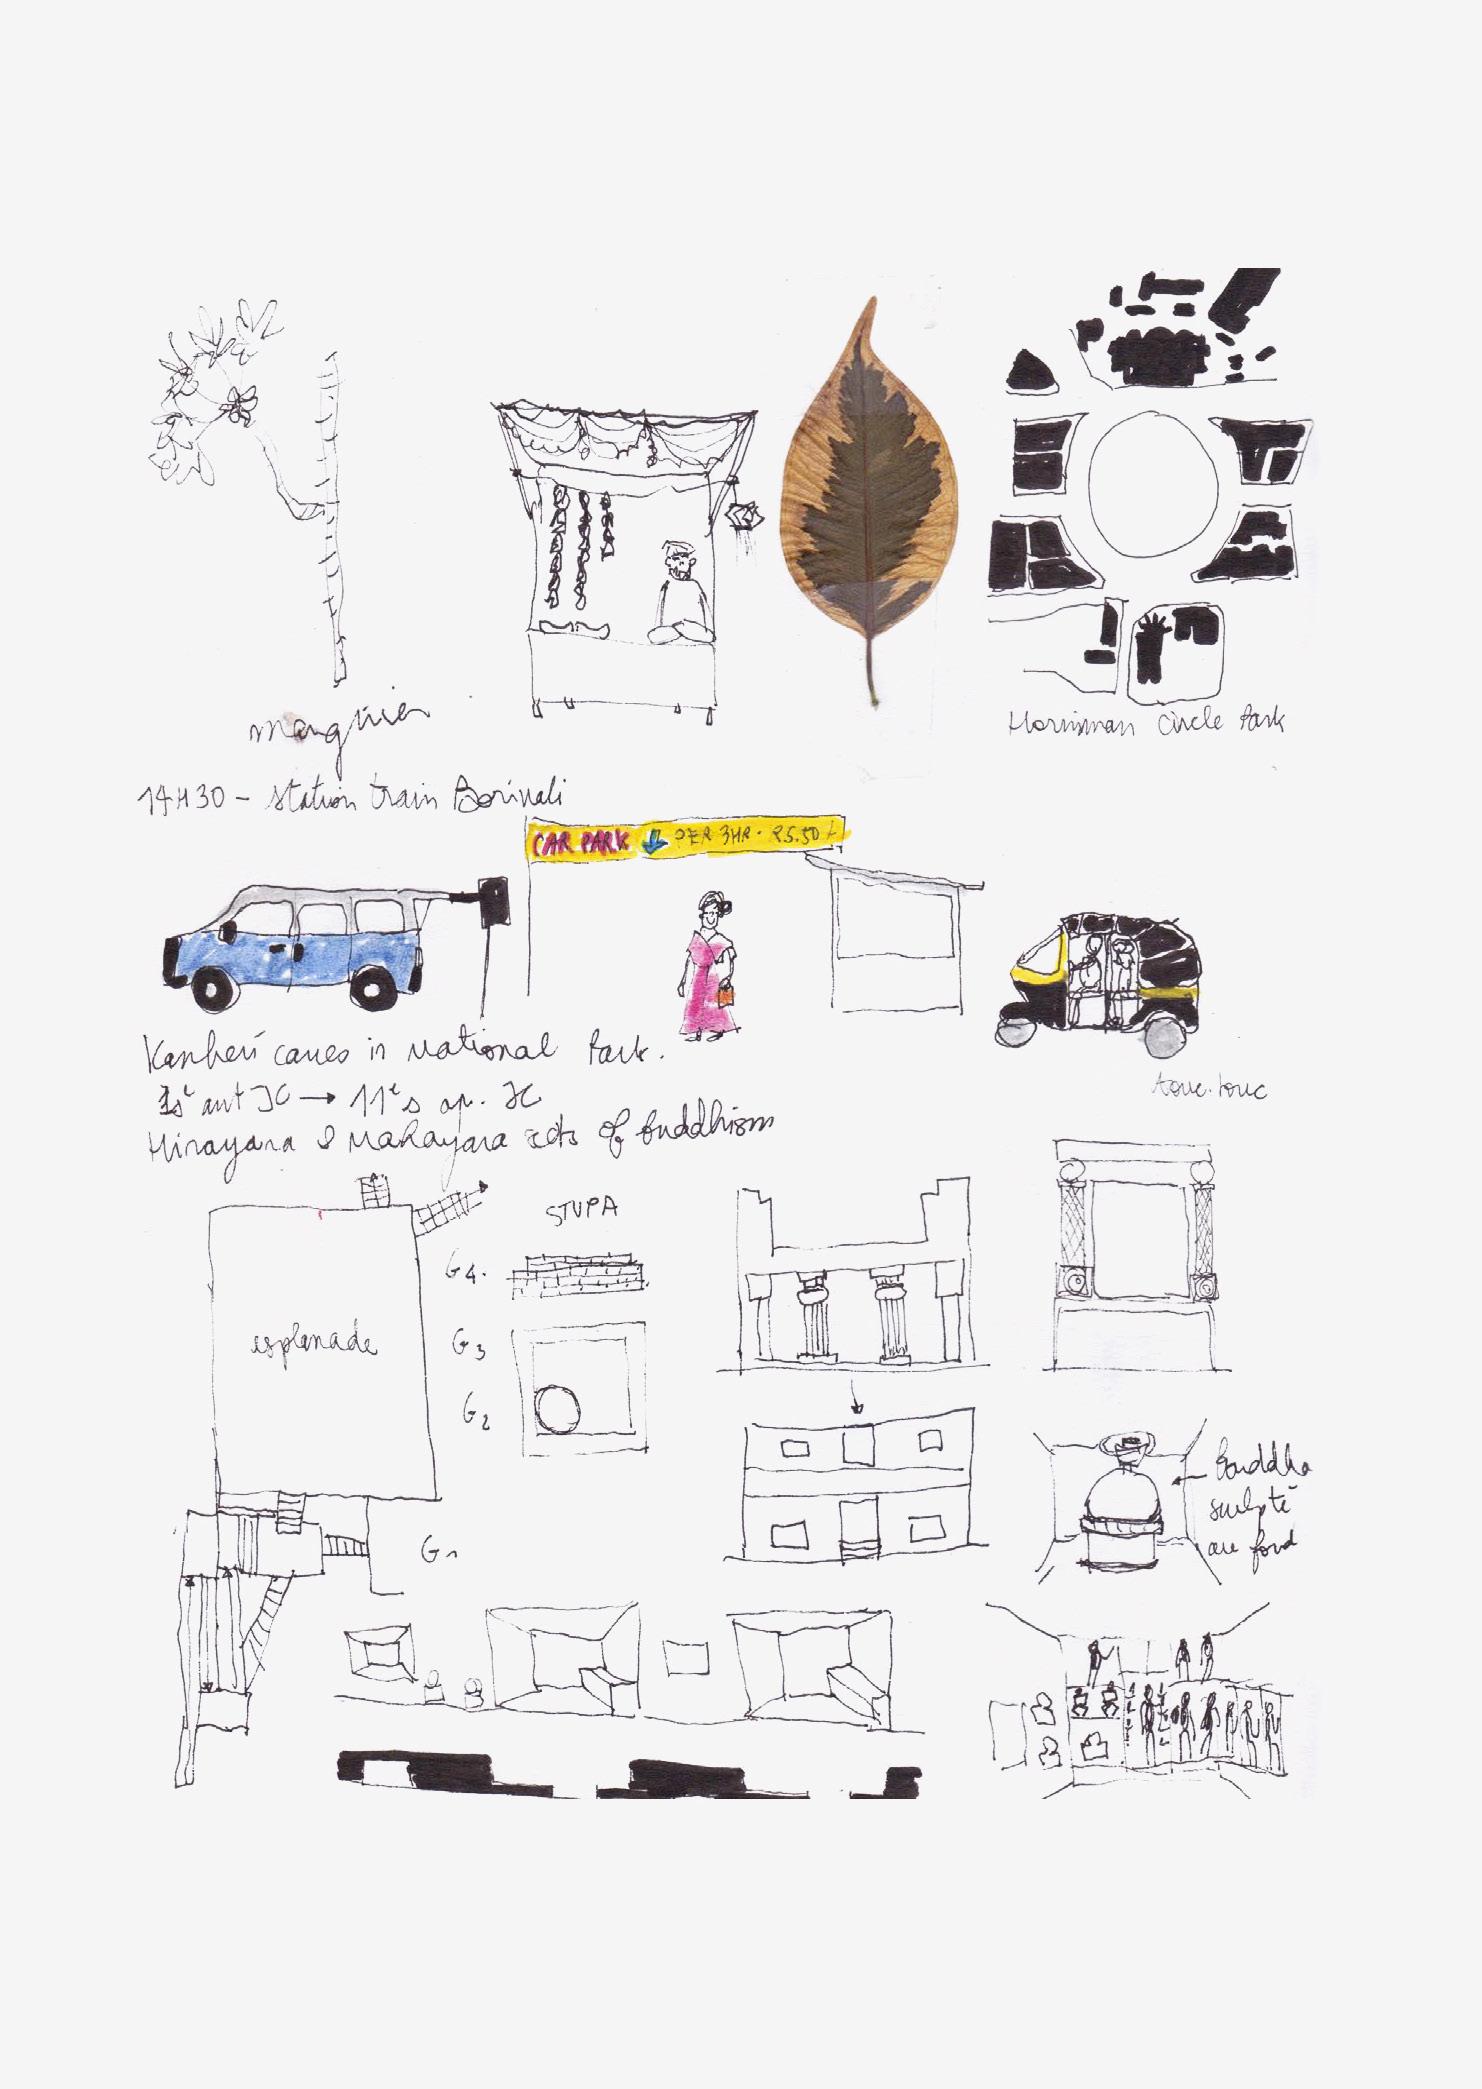 manguier
Horniman Circle Park
14H30 - Station train Borivali
CAR PARK PER 3HR. RS.50/-
Kanheri caves in National Park.
1s av JC → 11e s ap. JC
touc-touc
Hinayana & Mahayana sects of buddhism
STUPA
G4.
esplanade
G3
G2
Bouddha
sculpté
au fond
G1